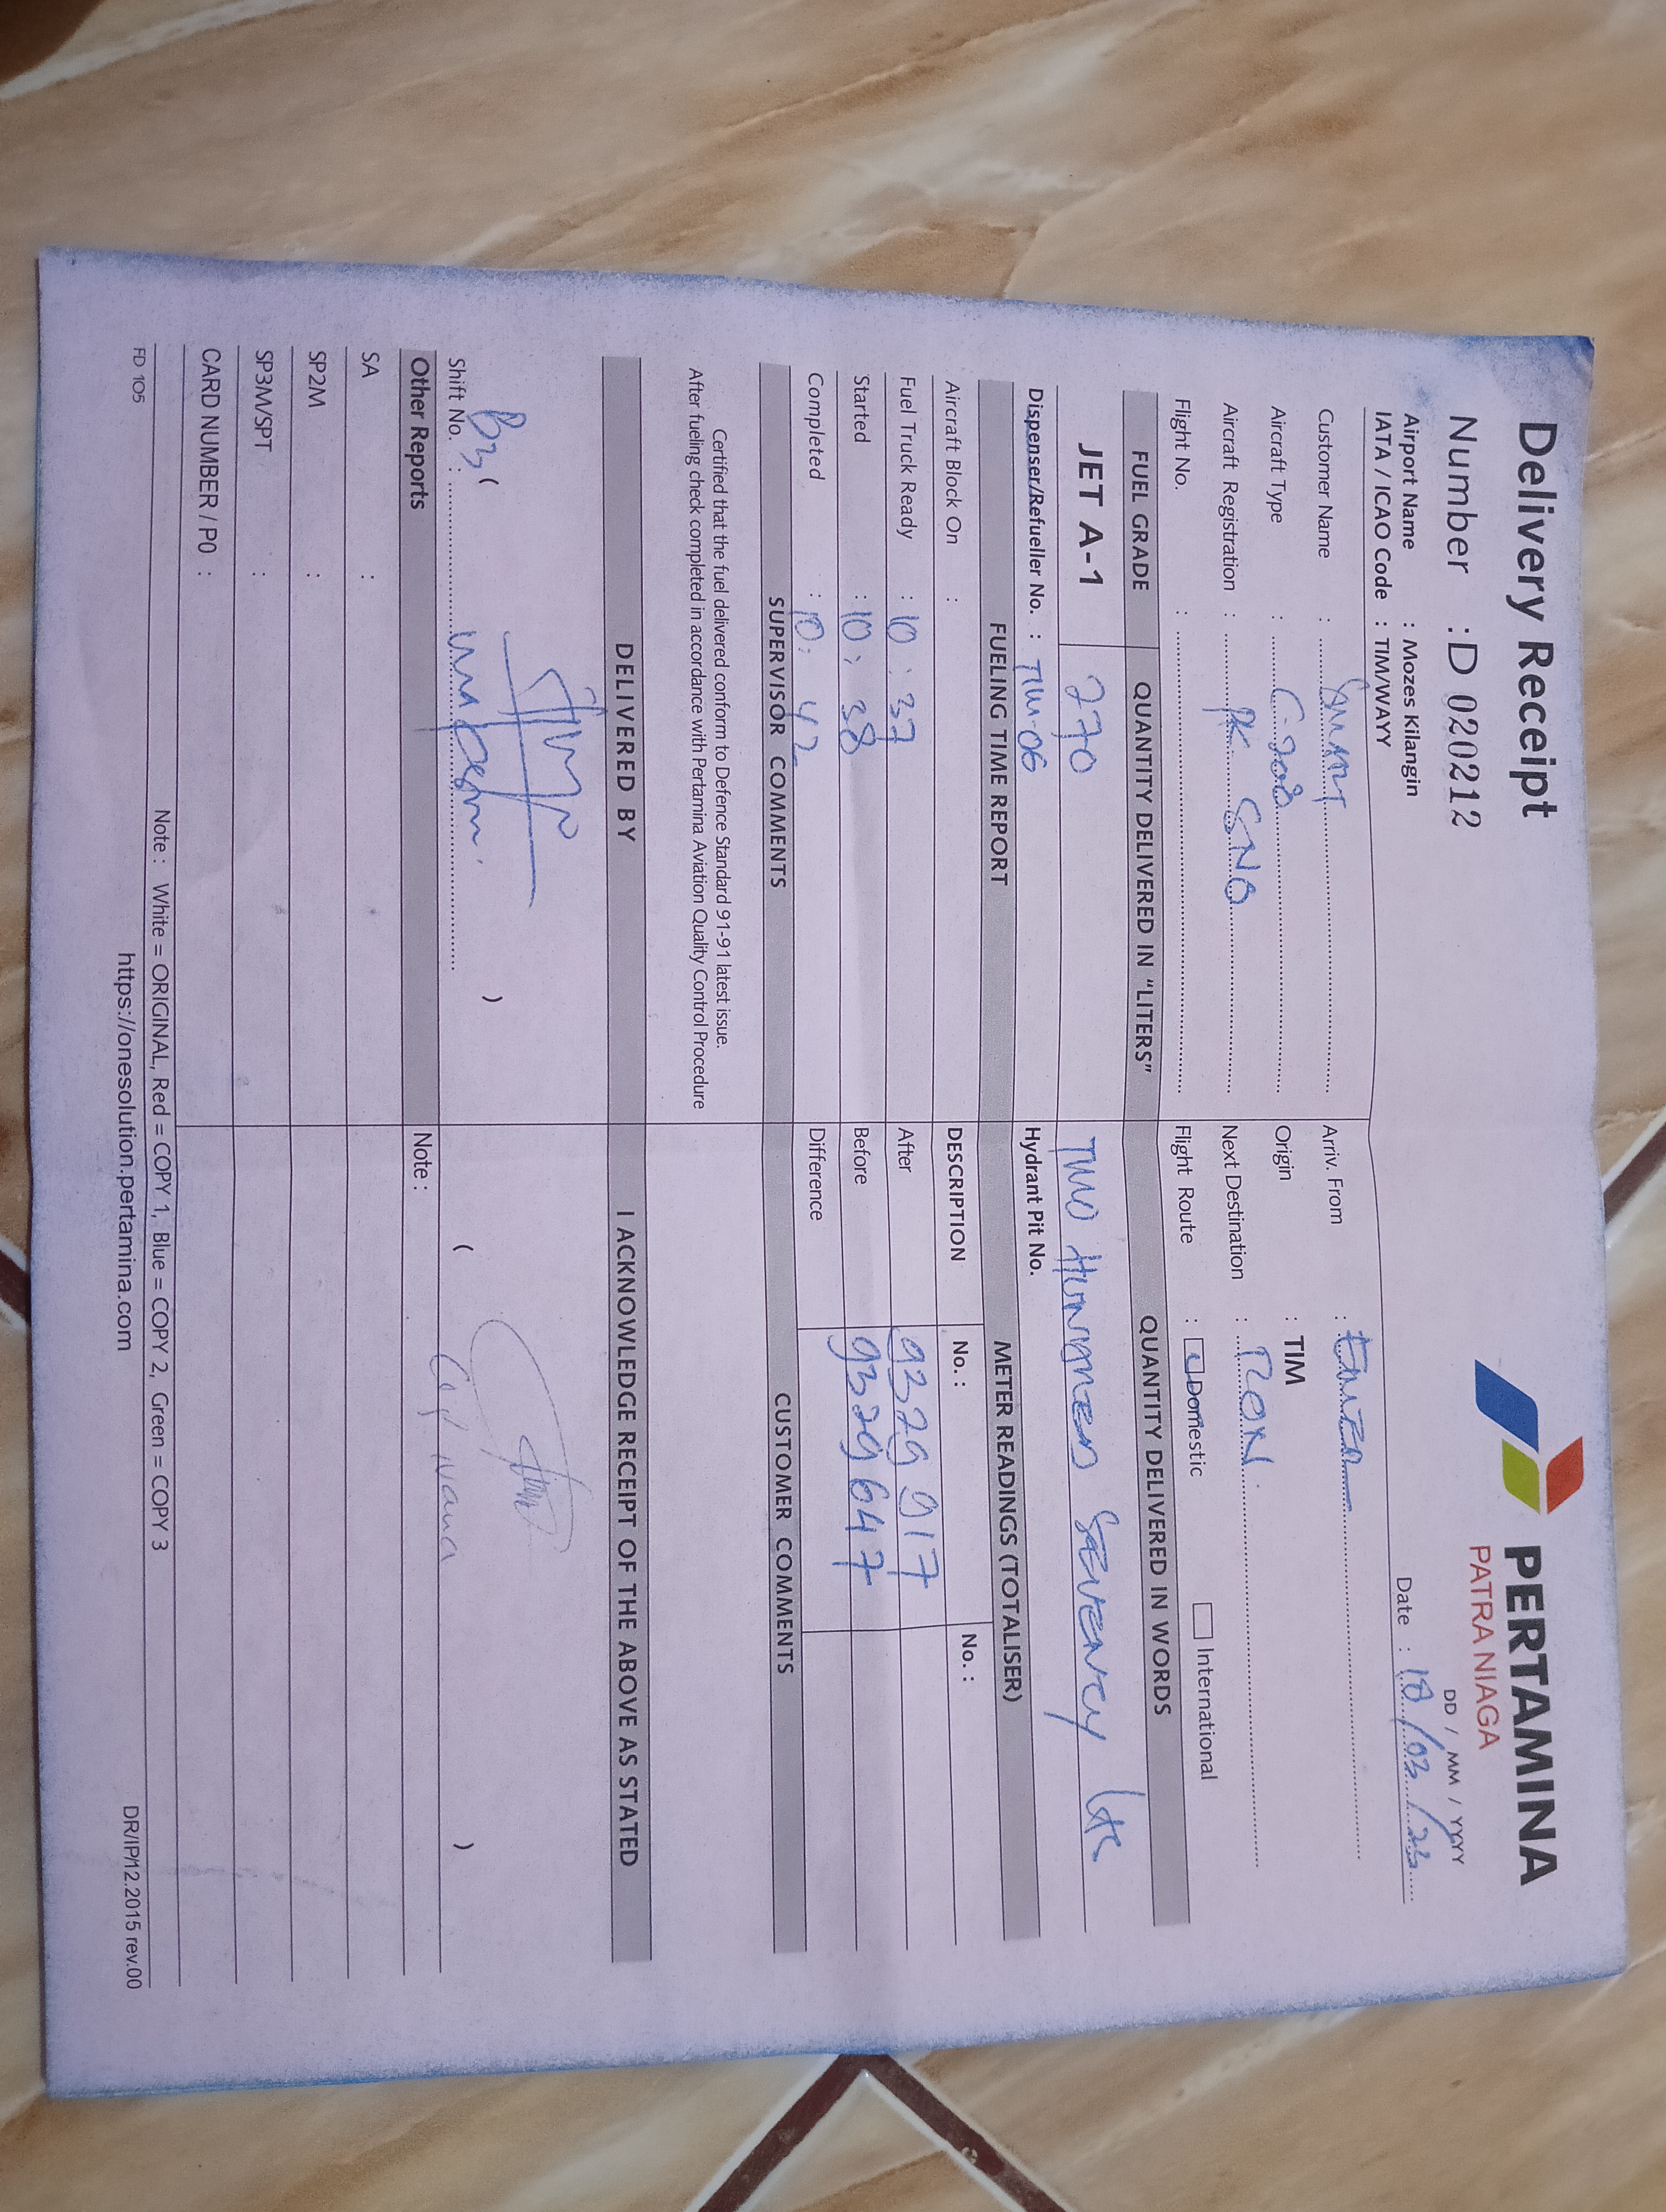 Delivery Receipt
PERTAMINA
PATRA NIAGA
Number : D 020212
DD / MM / YYYY
Airport Name : Mozes Kilangin
Date : 18/03/23
IATA / ICAO Code : TIM/WAYY
Customer Name : Smart
Arriv. From :
Aircraft Type : C-208
Origin : TIM
Aircraft Registration : PK SNB
Next Destination :
Flight No. :
Flight Route : Domestic International
FUEL GRADE QUANTITY DELIVERED IN "LITERS" QUANTITY DELIVERED IN WORDS
JET A-1 270 TWO HUNDRED SEVENTY Ltr
Dispenser/Refueller No. : TIM-06 Hydrant Pit No.
FUELING TIME REPORT METER READINGS (TOTALISER)
Aircraft Block On : DESCRIPTION No. : No. :
Fuel Truck Ready : 10 : 37 After 9329 917
Started : 10 : 38 Before 9329 647
Completed : 10 : 42 Difference
SUPERVISOR COMMENTS CUSTOMER COMMENTS
Certified that the fuel delivered conform to Defence Standard 91-91 latest issue.
After fueling check completed in accordance with Pertamina Aviation Quality Control Procedure
DELIVERED BY I ACKNOWLEDGE RECEIPT OF THE ABOVE AS STATED
( ) ( )
Shift No. :
Other Reports Note :
SA :
SP2M :
SP3M/SPT :
CARD NUMBER / PO :
Note : White = ORIGINAL, Red = COPY 1, Blue = COPY 2, Green = COPY 3
FD 105 https://onesolution.pertamina.com DR/IP/12.2015 rev.00